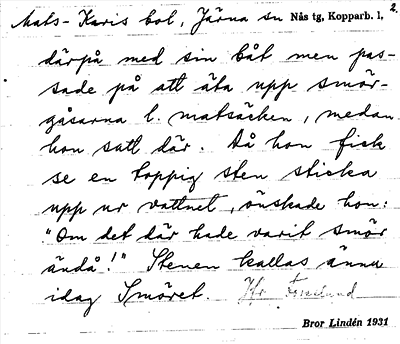 Mats-Karis bol, Järna sn Nås tg, Kopparb. l. 2.
därpå med sin båt men pas-
sade på att äta upp smör-
gåsarna l. matsäcken, medan
hon satt där. Då hon fick
se en toppig sten sticka
upp ur vattnet, önskade hon:
"Om det där hade varit smör
ändå!" Stenen kallas ännu
idag Smöret. Jfr
Bror Lindén 1931